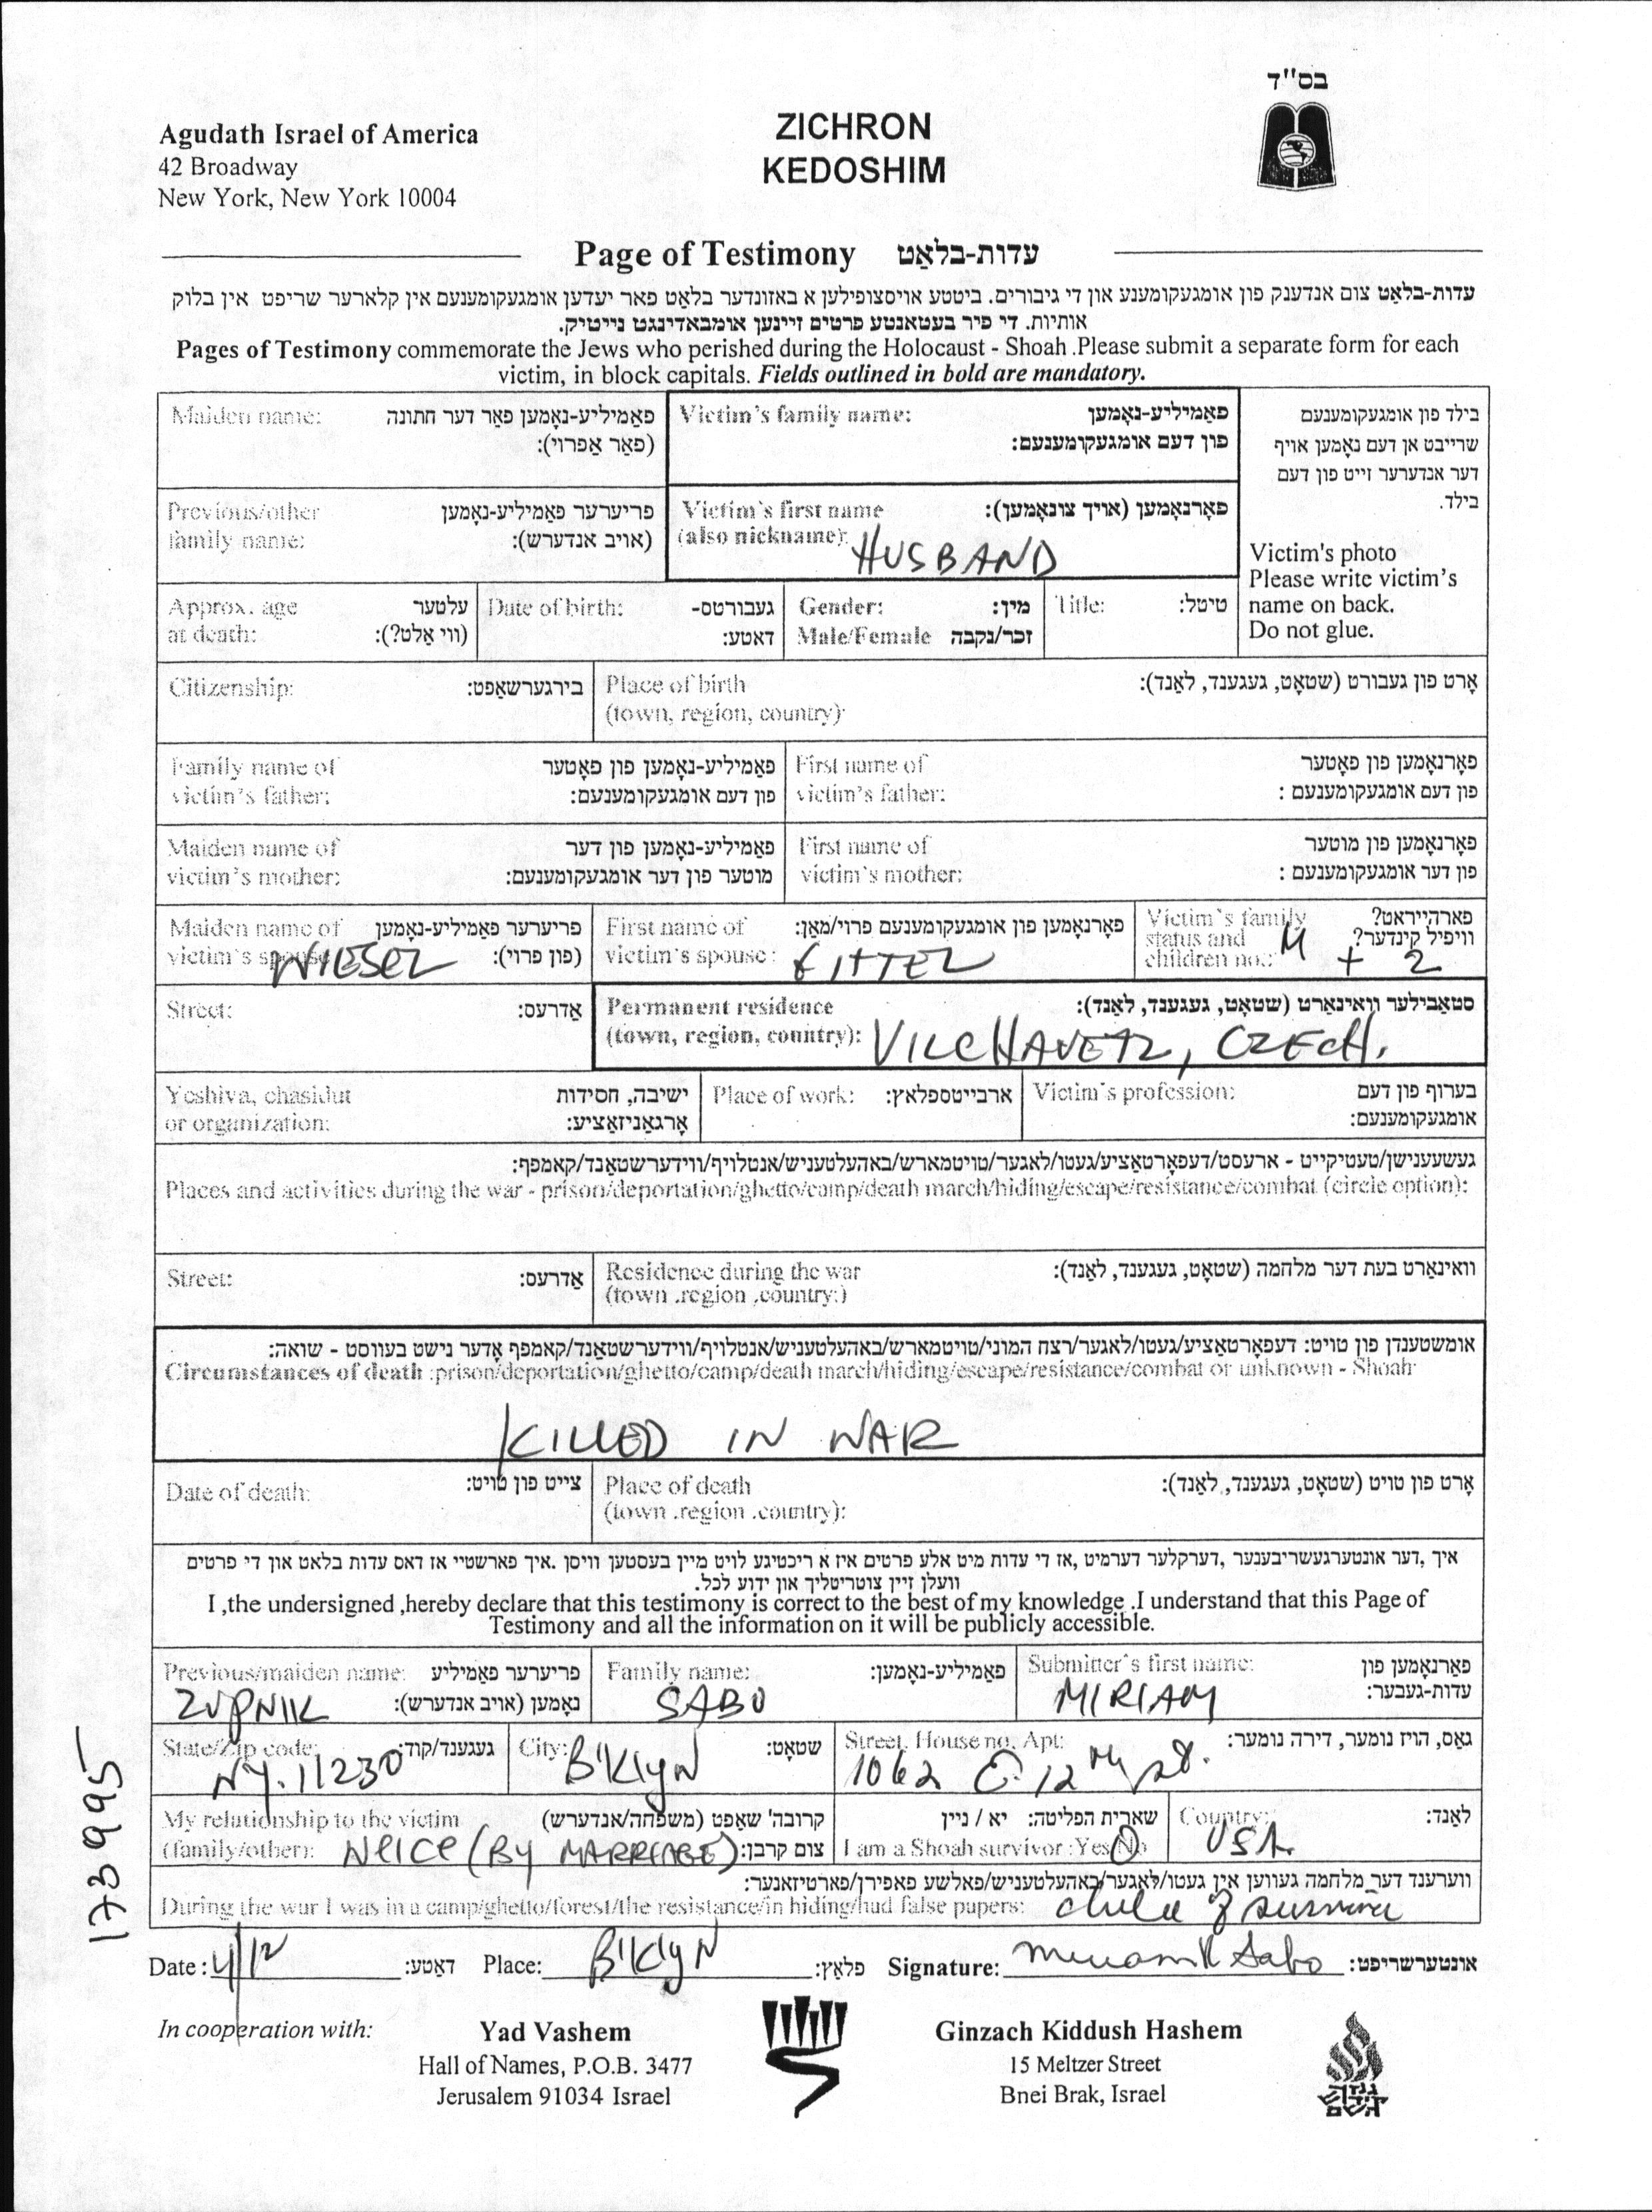 בס"ד
Agudath Israel of America
42 Broadway
New York, New York 10004
ZICHRON
KEDOSHIM
Page of Testimony עדות-בלאַט
עדות-בלאַט צום אנדענק פון אומגעקומענע און די גיבורים. ביטטע אויסצופילען א באזונדער בלאט פאר יעדען אומגעקומענעם אין קלארער שריפט אין בלוק
אותיות. די פיר בעטאנטע פרטים זיינען אומבאדינגט נייטיק.
Pages of Testimony commemorate the Jews who perished during the Holocaust - Shoah .Please submit a separate form for each
victim, in block capitals. Fields outlined in bold are mandatory.
Maiden name: פאַמיליע-נאָמען פאַר דער חתונה
(פאַר אַפרוי):
Victim's family name: פאַמיליע-נאָמען
פון דעם אומגעקומענעם:
בילד פון אומגעקומענעם
שרייבט אן דעם נאָמען אויף
דער אנדערער זייט פון דעם
בילד.
Victim's photo
Please write victim's
name on back.
Do not glue.
Previous/other פריערער פאַמיליע-נאָמען
family name: (אויב אנדערש):
Victim's first name פאָרנאָמען (אויך צונאָמען):
(also nickname): HUSBAND
Approx. age עלטער
at death: (ווי אַלט?):
Date of birth: געבורטס-
דאטע:
Gender: מין:
Male/Female זכר/נקבה
Title: טיטל:
Citizenship: בירגערשאַפט:
Place of birth אָרט פון געבורט (שטאָט, געגענד, לאַנד):
(town, region, country):
Family name of פאַמיליע-נאָמען פון פאָטער
victim's father: פון דעם אומגעקומענעם:
First name of פאָרנאָמען פון פאָטער
victim's father: פון דעם אומגעקומענעם :
Maiden name of פאַמיליע-נאָמען פון דער
victim's mother: מוטער פון דער אומגעקומענעם:
First name of פאָרנאָמען פון מוטער
victim's mother: פון דער אומגעקומענעם :
Maiden name of פריערער פאַמיליע-נאָמען
victim's spouse: WIESEL (פון פרוי):
First name of פאָרנאָמען פון אומגעקומענעם פרוי/מאַן:
victim's spouse: EITTEL
Victim's family פארהייראט?
status and וויפיל קינדער?
children no.: M + 2
Street: אַדרעס:
Permanent residence סטאַבילער וואוינאָרט (שטאָט, געגענד, לאַנד):
(town, region, country): VILCHAVETZ, CZECH.
Yeshiva, chasidut ישיבה, חסידות
or organization: אָרגאַניזאַציע:
Place of work: ארבייטספלאץ:
Victim's profession: בערוף פון דעם
אומגעקומענעם:
געשעענישן/טעטיקייט - ארעסט/דעפּאָרטאַציע/געטו/לאגער/טויטמארש/באהעלטעניש/אנטלויף/ווידערשטאַנד/קאמפף:
Places and activities during the war - prison/deportation/ghetto/camp/death march/hiding/escape/resistance/combat (circle option):
Street: אַדרעס:
Residence during the war וואוינאָרט בעת דער מלחמה (שטאָט, געגענד, לאַנד):
(town .region ,country:)
אומשטענדן פון טויט: דעפּאָרטאַציע/געטו/לאגער/רצח המוני/טויטמארש/באהעלטעניש/אנטלויף/ווידערשטאַנד/קאמפף אָדער נישט בעווסט - שואה:
Circumstances of death :prison/deportation/ghetto/camp/death march/hiding/escape/resistance/combat or unknown - Shoah
KILLED IN WAR
Date of death: צייט פון טויט:
Place of death אָרט פון טויט (שטאָט, געגענד, לאַנד):
(town .region .country):
איך ,דער אונטערגעשריבענער ,דערקלער דערמיט ,אז די עדות מיט אלע פרטים איז א ריכטיגע לויט מיין בעסטען וויסן .איך פארשטיי אז דאס עדות בלאט און די פרטים
וועלן זיין צוטריטליך און ידוע לכל.
I ,the undersigned ,hereby declare that this testimony is correct to the best of my knowledge .I understand that this Page of
Testimony and all the information on it will be publicly accessible.
Previous/maiden name: פריערער פאַמיליע
ZUPNIK נאָמען (אויב אנדערש):
Family name: פאַמיליע-נאָמען:
SABO
Submitter's first name: פאַרנאָמען פון
MIRIAM עדות-געבער:
State/Zip code: געגענד/קוד:
NY. 11230
City: B'KlyN שטאָט:
Street, House no, Apt: גאַס, הויז נומער, דירה נומער:
1062 E. 12th St.
My relationship to the victim קרובה' שאַפט (משפּחה/אנדערש)
(family/other): NEICE (BY MARRIAGE) צום קרבן:
שארית הפליטה: יא / ניין
I am a Shoah survivor :Yes/No
Country: לאַנד:
USA.
ווערענד דער מלחמה געווען אין געטו/לאַגער/באַהעלטעניש/פאלשע פאפירן/פארטיזאנער:
During the war I was in a camp/ghetto/forest/the resistance/in hiding/had false papers: child of survivor
Date : 4/12 דאַטע: Place: B'KlyN פלאַץ: Signature: Miriam Sabo אונטערשריפט:
In cooperation with:
Yad Vashem
Hall of Names, P.O.B. 3477
Jerusalem 91034 Israel
Ginzach Kiddush Hashem
15 Meltzer Street
Bnei Brak, Israel
גנזך
קידוש
השם
173995